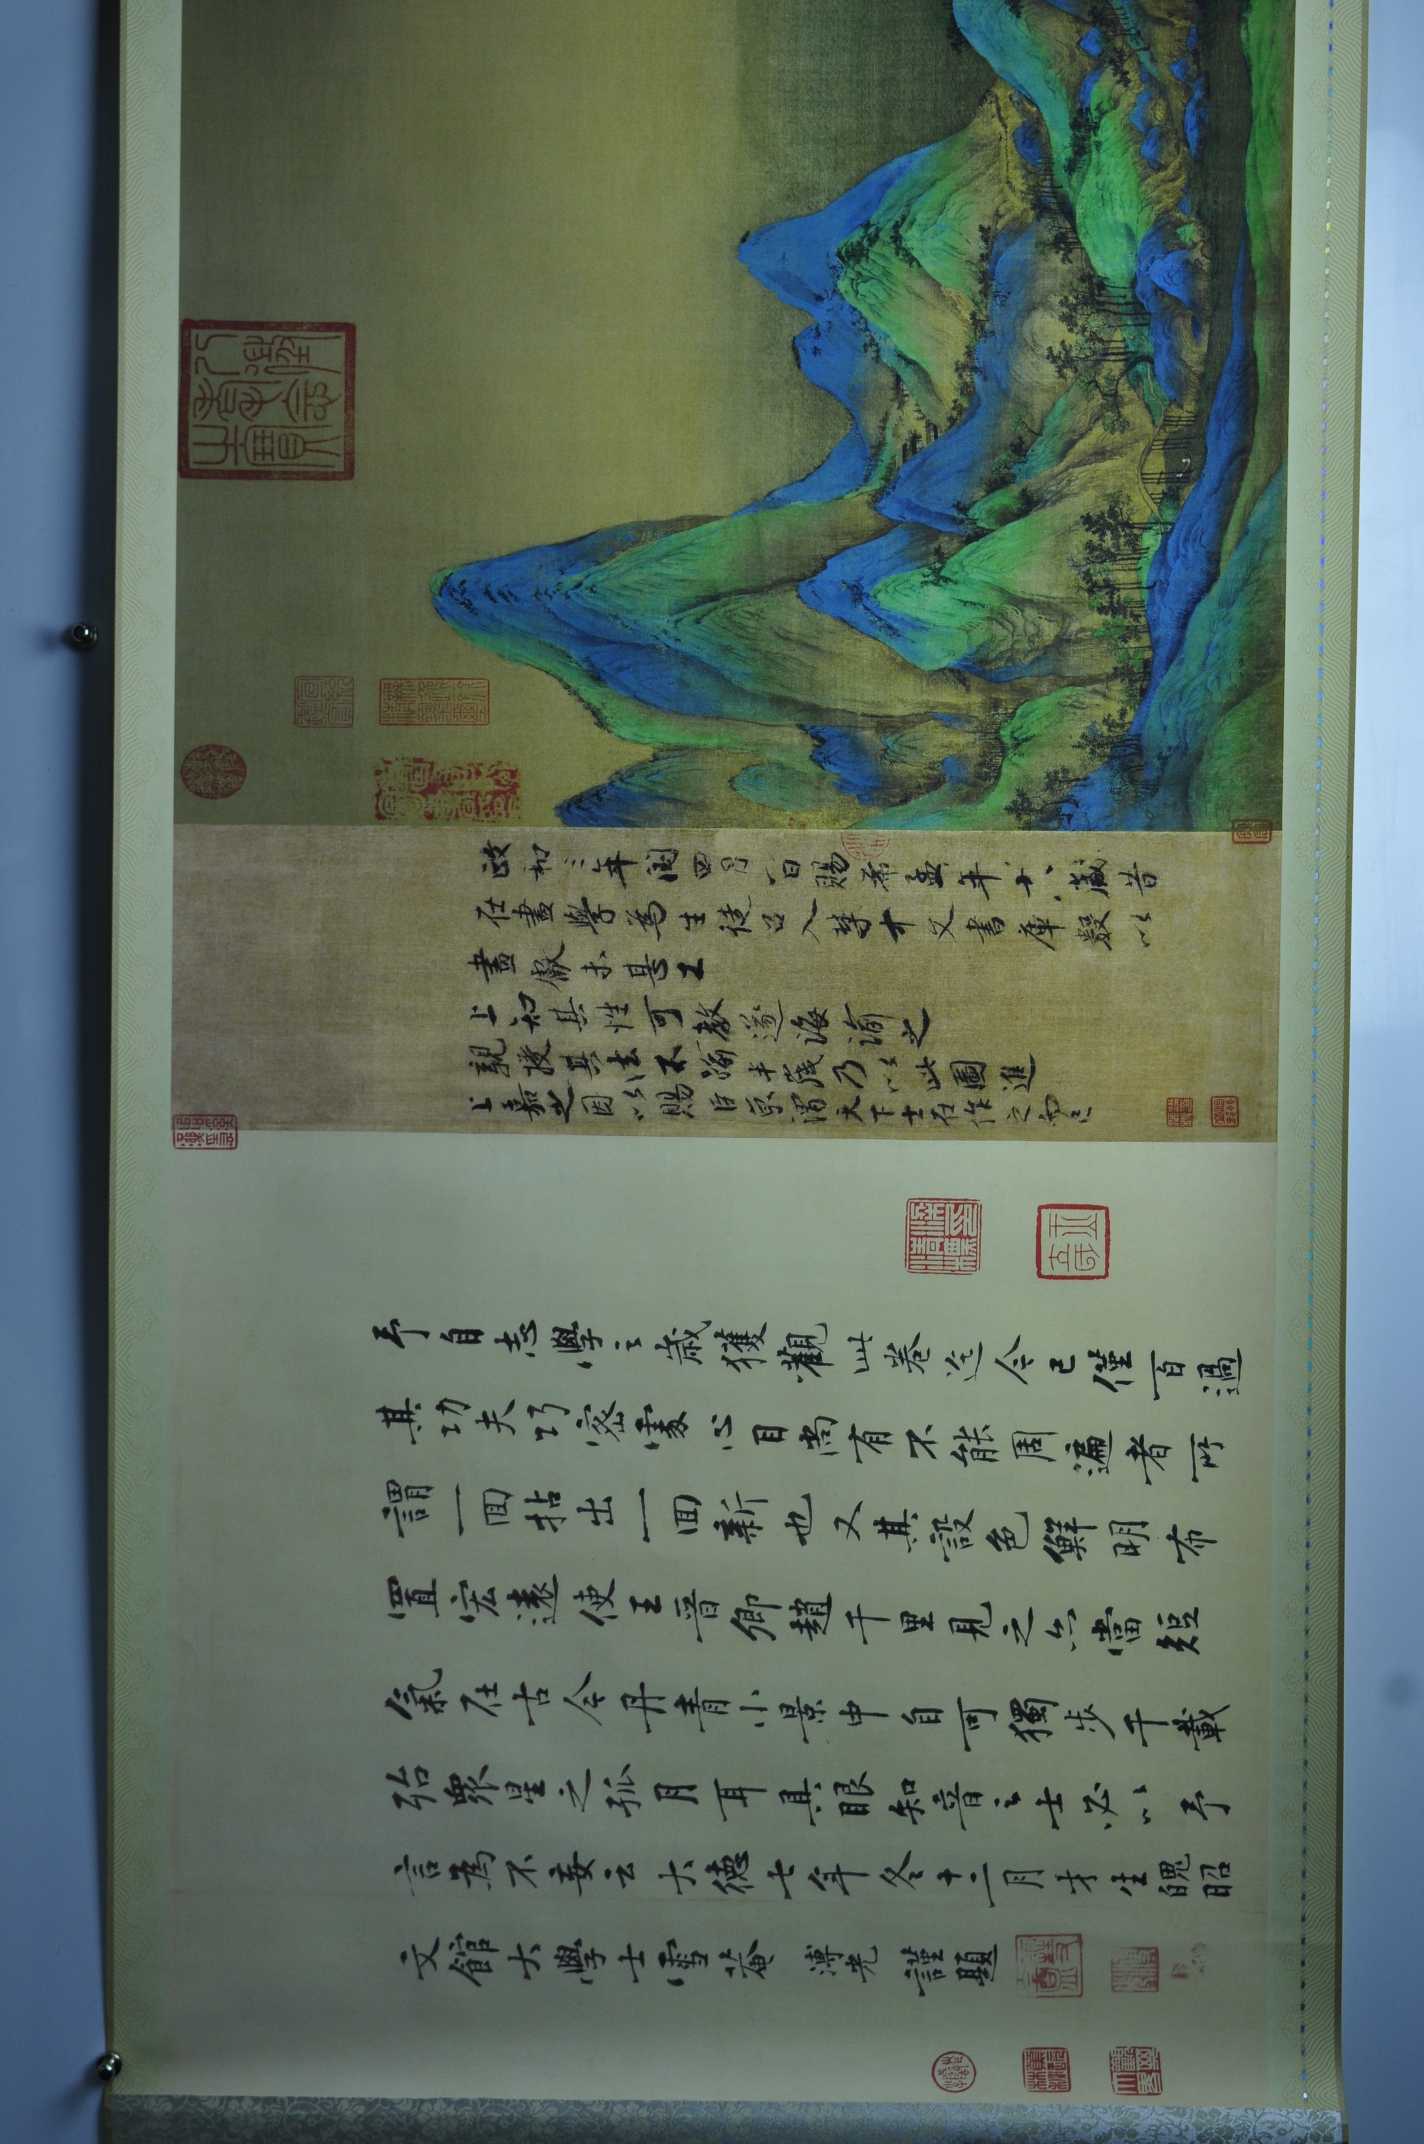 政和三年閏四月八日賜希孟年十八歲昔
在畫學為生徒召入禁中文書庫數以
畫獻未甚工
上知其性可教遂誨諭之
親授其法不踰半歲乃以此圖進
上嘉之因以賜臣京謂天下士在作之而已
予自志學之歲獲觀此卷迄今已僅百過
其功夫巧密處心目尚有不能周遍者所
謂一回拈出一回新也又其設色鮮明布
置宏遠使王晉卿趙千里見之亦當短
氣在古今丹青小景中自可獨步千載
殆眾星之孤月耳具眼知音之士必以予
言為不妄云大德七年冬十二月才生魄昭
文館大學士雪菴 溥光 謹題